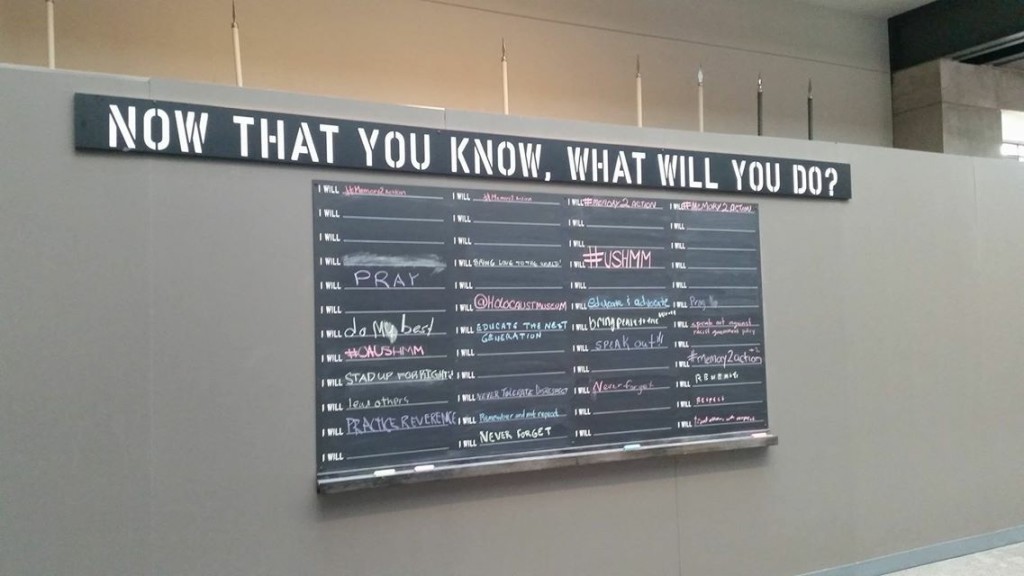 NOW THAT YOU KNOW, WHAT WILL YOU DO?
I WILL #Memory2Action
I WILL
I WILL
I WILL
PRAY
I WILL
I WILL do My best
I WILL #OAUSHMM
I WILL STAD UP FOR RIGHT!
I WILL lead others
I WILL PRACTICE REVERENCE
I WILL
I WILL #Memory2Action
I WILL
I WILL
I WILL BRING LOVE TO THE WORLD!
I WILL
I WILL @HOLOCAUSTMUSEUM
I WILL EDUCATE THE NEXT
GENERATION
I WILL
I WILL
I WILL NEVER TOLERATE DISRESPECT
I WILL Remember and not repeat
I WILL NEVER FORGET
I WILL #MEMORY2ACTION
I WILL
I WILL
I WILL #USHMM
I WILL
I WILL educate & advocate
I WILL bring peace to the world
I WILL SPEAK OUT!!
I WILL
I WILL Never forget
I WILL
I WILL
I WILL #MEMORY2ACTION
I WILL
I WILL
I WILL
I WILL
I WILL Pray
I WILL speak out against
racist government policy
I WILL #memory2action
I WILL REMEMBER
I WILL RESPECT
I WILL treat others with respect